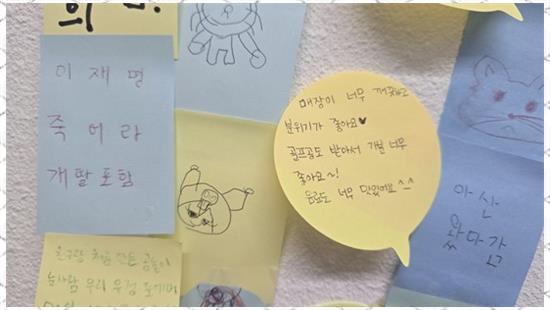 이재명
죽어라
개딸포함
매장이 너무 깨끗하고
분위기가 좋아요♥
골프공도 받아서 기분 너무
좋아요~!
음료도 너무 맛있어요^^
아산
왔다감
친구랑 처음 만든 곰돌이
눈사람 우리 우정